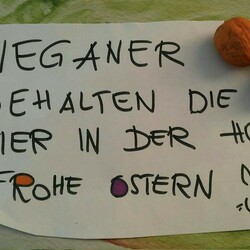 VEGANER
BEHALTEN DIE
EIER IN DER
FROHE OSTERN